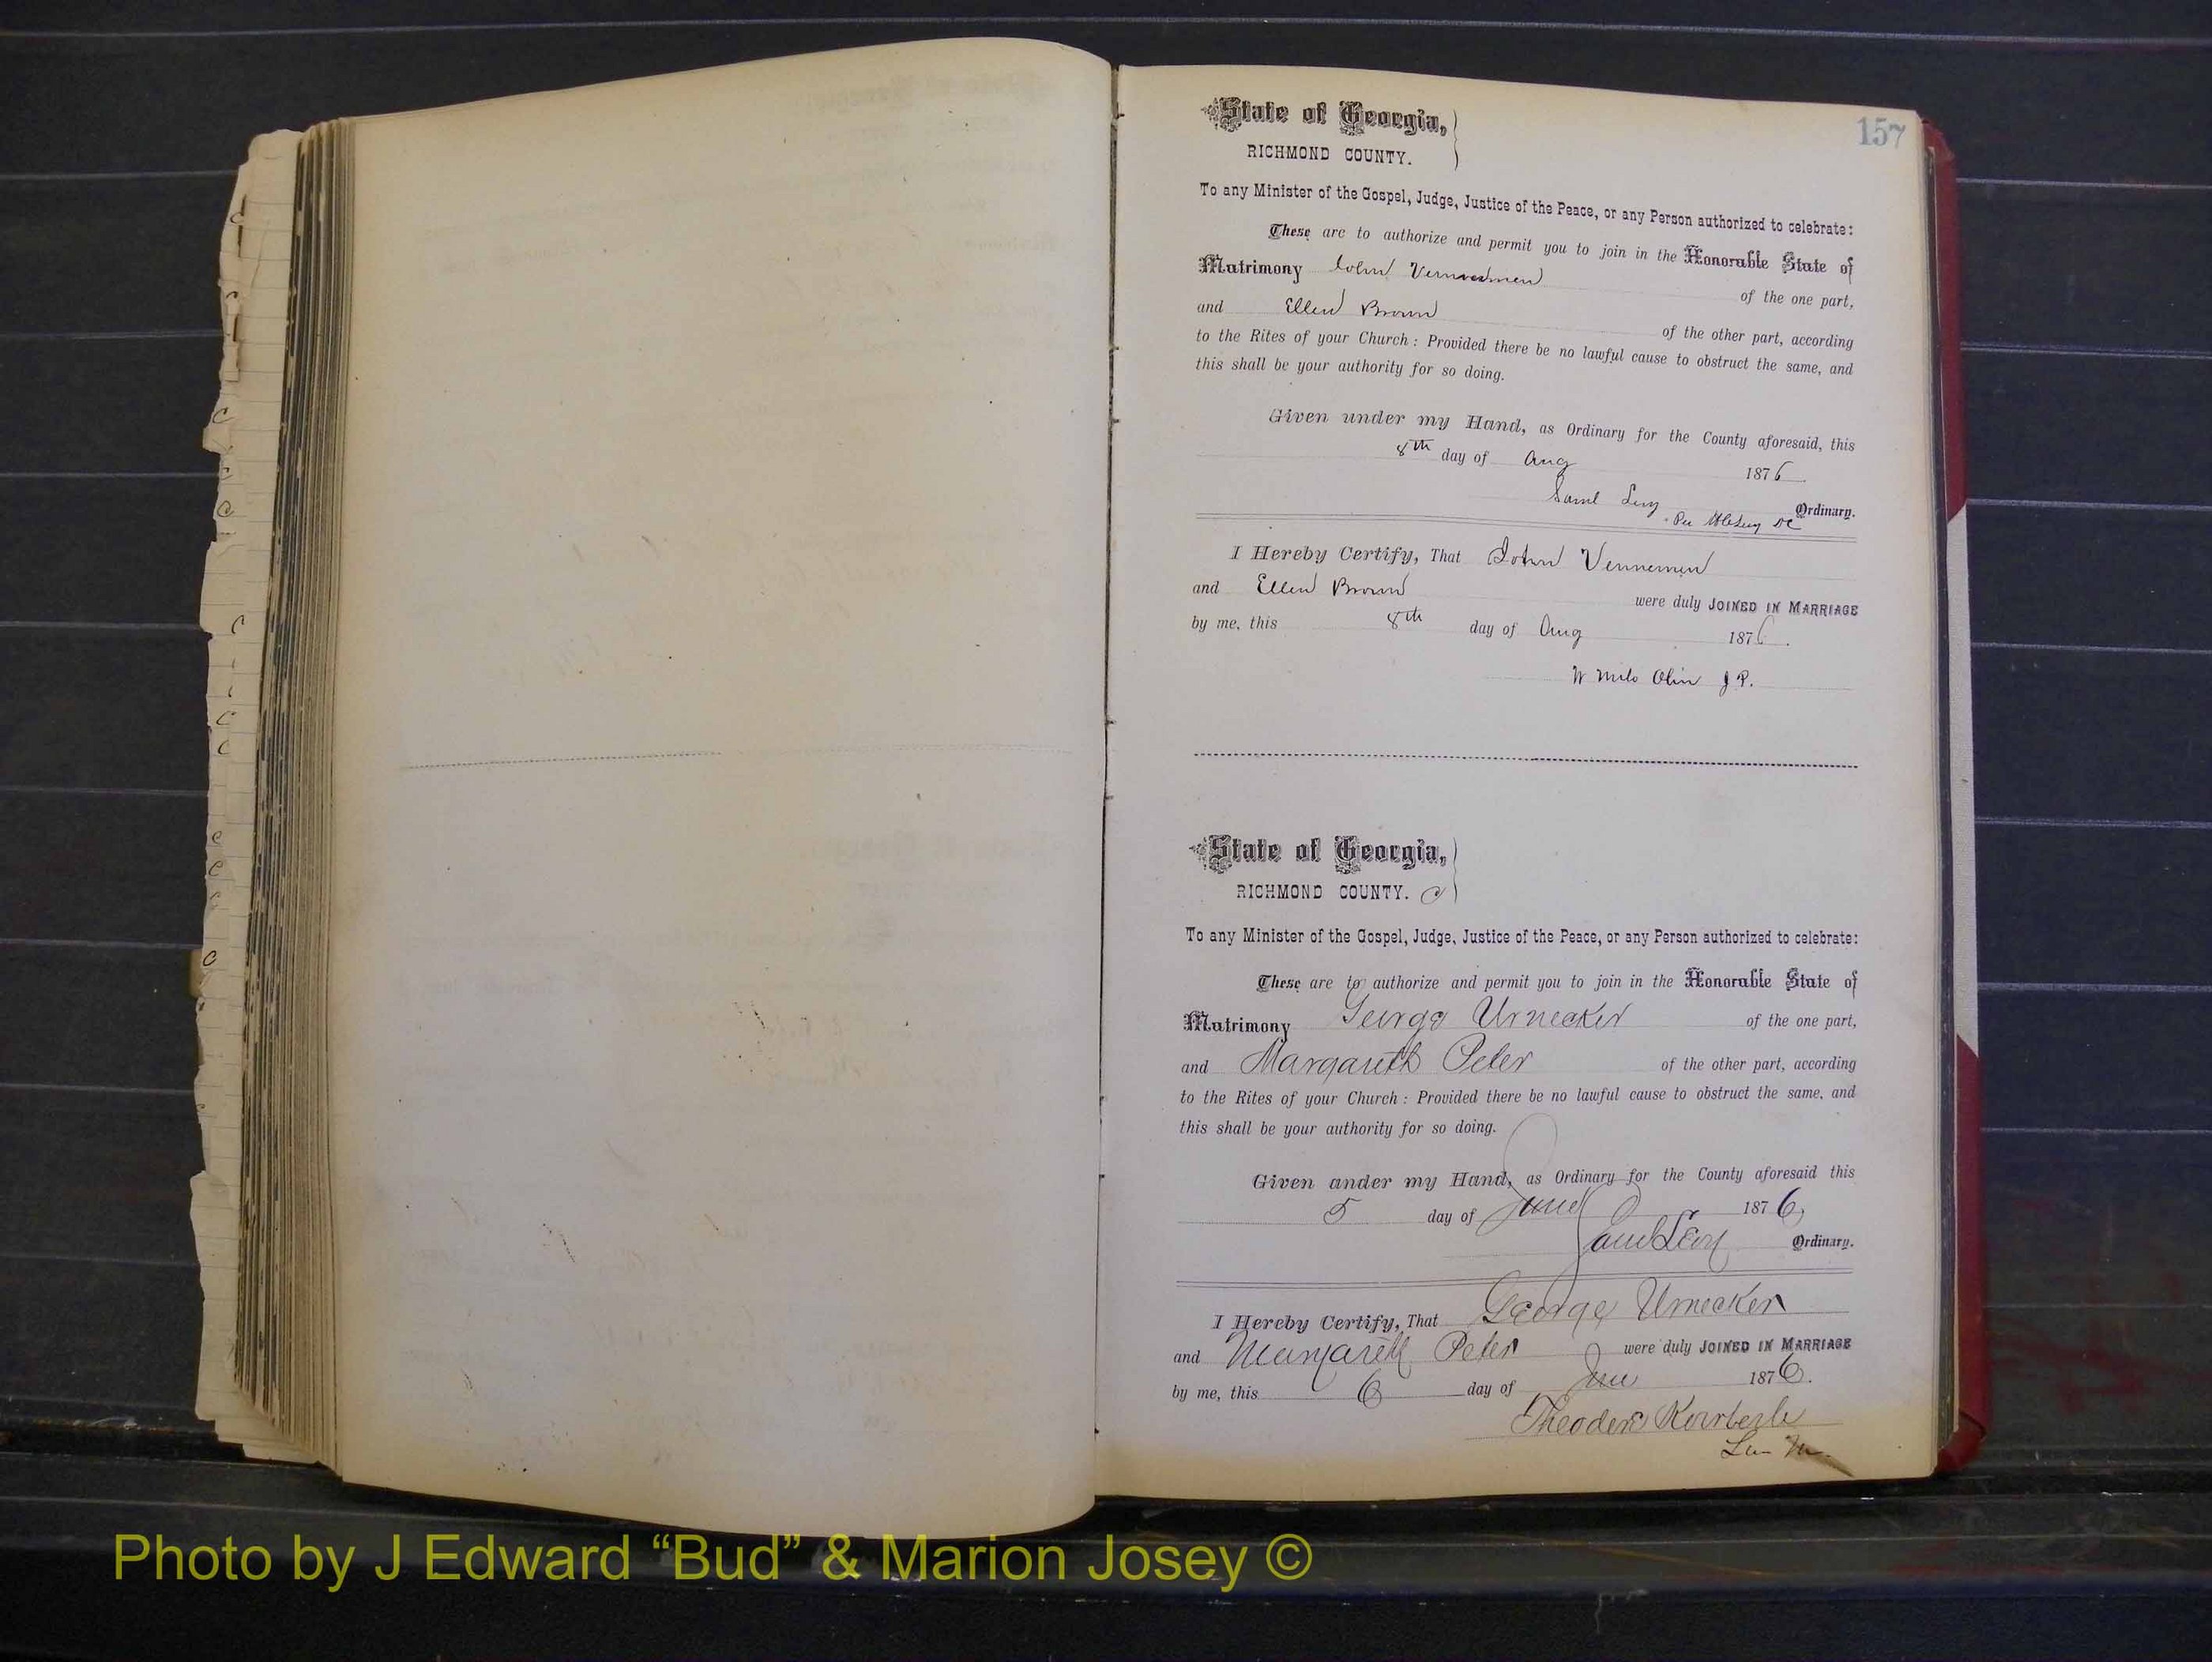 157
State of Georgia,
RICHMOND COUNTY.
To any Minister of the Gospel, Judge, Justice of the Peace, or any Person authorized to celebrate:
These are to authorize and permit you to join in the Honorable State of
Matrimony John of the one part,
and Ellen Brown of the other part, according
to the Rites of your Church: Provided there be no lawful cause to obstruct the same, and
this shall be your authority for so doing.
Given under my Hand, as Ordinary for the County aforesaid, this
8th day of Aug 1876
Saml Levy Ordinary.
Per Levy DC
I Hereby Certify, That John Vennemen
and Ellen Brown were duly JOINED IN MARRIAGE
by me, this 8th day of Aug 1876.
W Milo Olin J P.
State of Georgia,
RICHMOND COUNTY. C
To any Minister of the Gospel, Judge, Justice of the Peace, or any Person authorized to celebrate:
These are to authorize and permit you to join in the Honorable State of
Matrimony George Urnecker of the one part,
and Margareth Peter of the other part, according
to the Rites of your Church: Provided there be no lawful cause to obstruct the same, and
this shall be your authority for so doing.
Given under my Hand, as Ordinary for the County aforesaid this
5 day of June 1876,
Saml Levy Ordinary.
I Hereby Certify, That George Urnecker
and Margareth Peter were duly JOINED IN MARRIAGE
by me, this 6 day of June 1876.
Theodere
Photo by J Edward “Bud” & Marion Josey ©